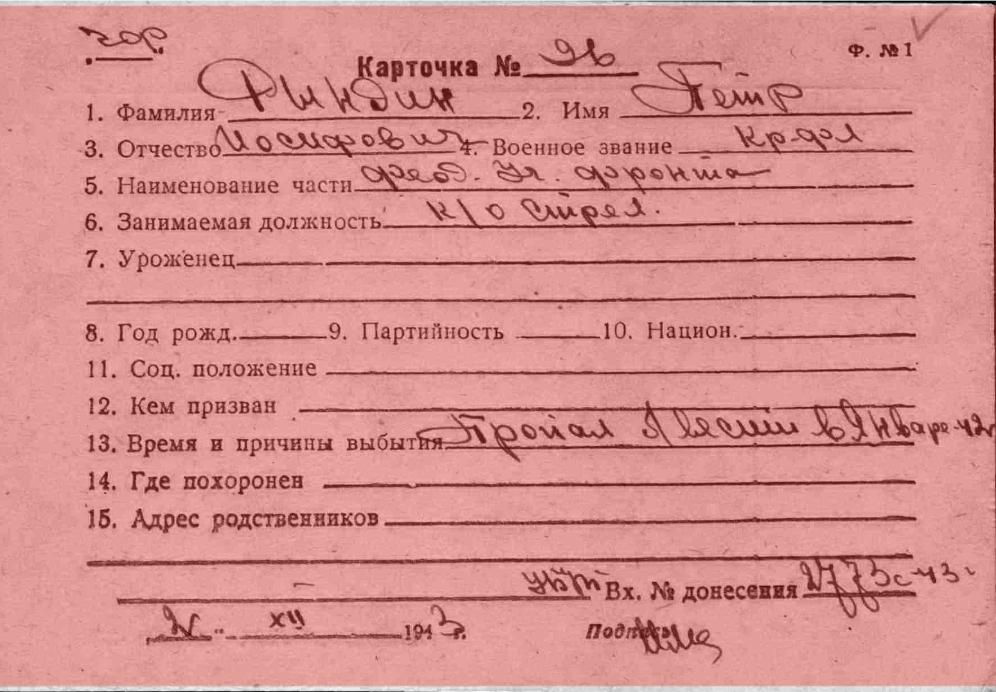 Карточка № 96 Ф. № 1
1. Фамилия Рындин 2. Имя Петр
3. Отчество Иосифович 4. Военное звание Кр-ц
5. Наименование части фронта
6. Занимаемая должность К/о стрел.
7. Уроженец
8. Год рожд. 9. Партийность 10. Национ.
11. Соц. положение
12. Кем призван
13. Время и причины выбытия Пропал без вести в Январе 42г
14. Где похоронен
15. Адрес родственников
Вх. № донесения 2773с-43г
2 XII 1943 г. Подпись